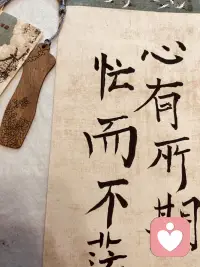 心有所期
忙而不茫